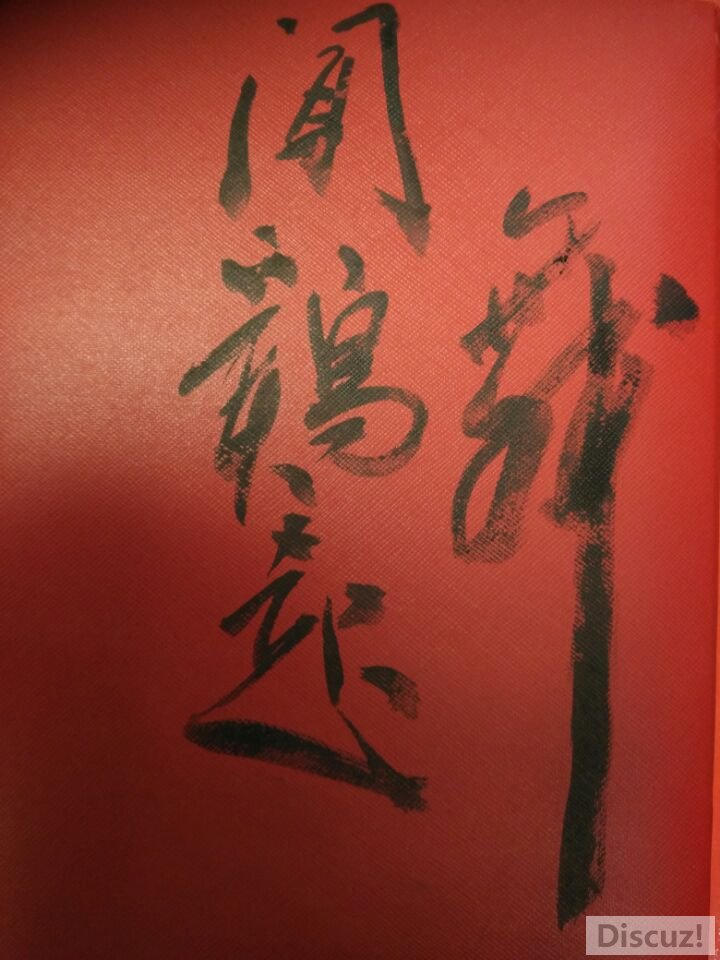 闻鸡起
舞
Discuz!